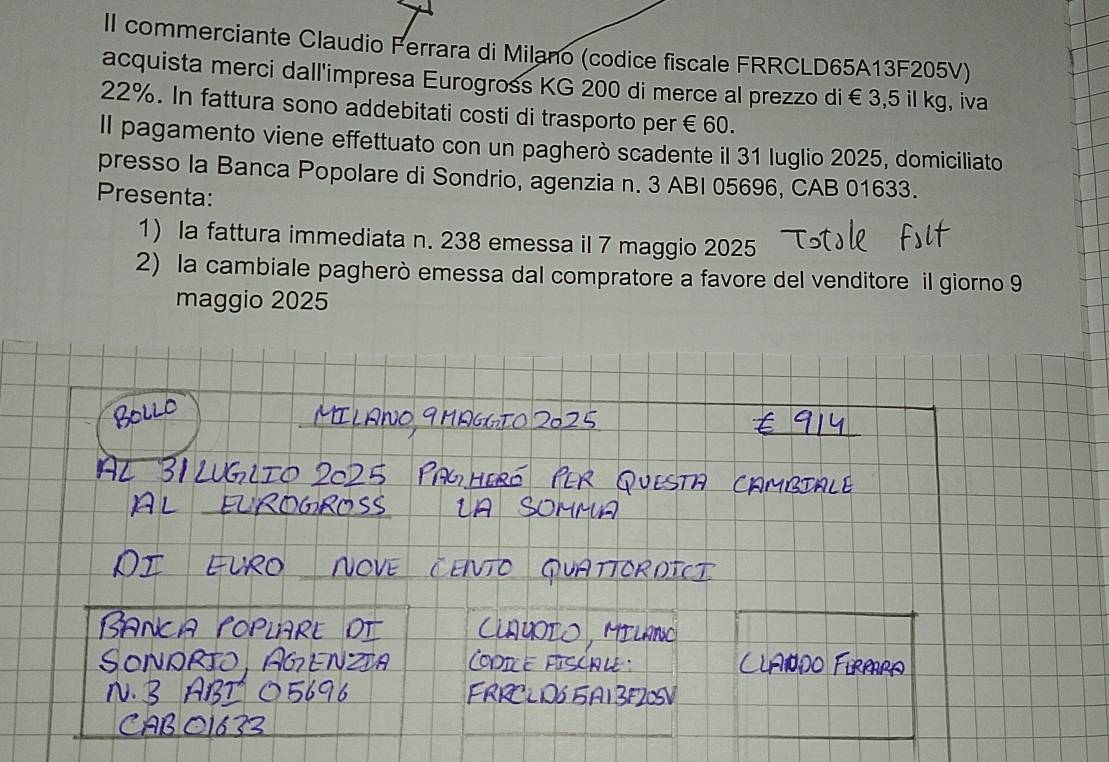 Il commerciante Claudio Ferrara di Milano (codice fiscale FRRCLD65A13F205V)
acquista merci dall'impresa Eurogross KG 200 di merce al prezzo di € 3,5 il kg, iva
22%. In fattura sono addebitati costi di trasporto per € 60.
Il pagamento viene effettuato con un pagherò scadente il 31 luglio 2025, domiciliato
presso la Banca Popolare di Sondrio, agenzia n. 3 ABI 05696, CAB 01633.
Presenta:
1) la fattura immediata n. 238 emessa il 7 maggio 2025 Totale Fatt
2) la cambiale pagherò emessa dal compratore a favore del venditore il giorno 9
maggio 2025
BOLLO MILANO, 9 MAGGIO 2025 € 914
AL 31 LUGLIO 2025 PAGHERÒ PER QUESTA CAMBIALE
AL EUROGROSS LA SOMMA
DI EURO NOVE CENTO QUATTORDICI
BANCA POPLARE DI CLAUDIO, MILANO
SONDRIO, AGENZIA CODICE FISCALE: CLAUDO FERRARA
N. 3 ABI 05696 FRRCLD65A13F205V
CAB 01633